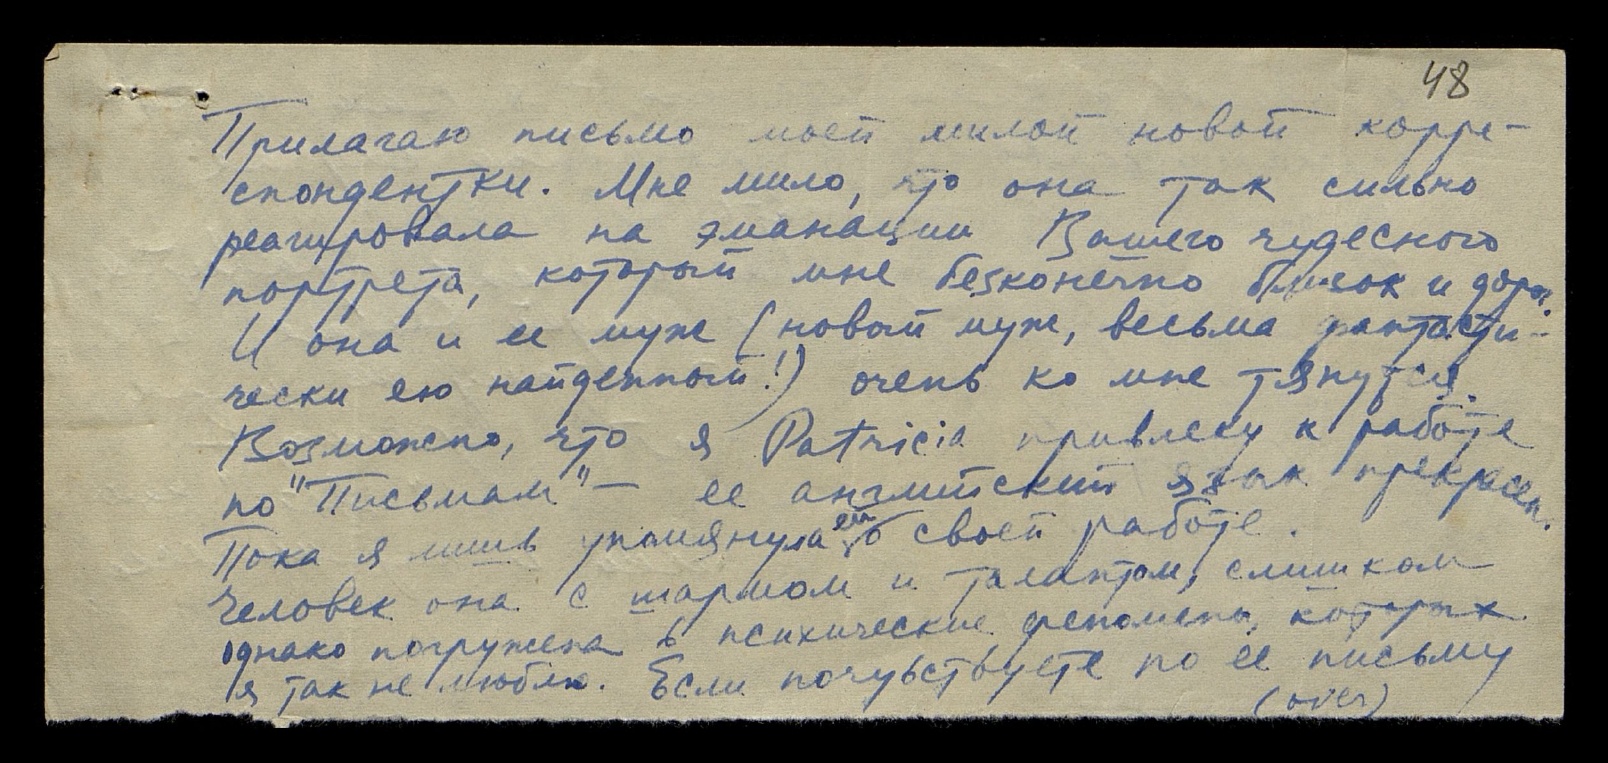 48
Прилагаю письмо моей милой новой корре-
спондентки. Мне мило, что она так сильно
реагировала на эманации Вашего чудесного
портрета, который мне безконечно близок и дорог.
И она и ее муж (новый муж, весьма фантасти-
чески ею найденный!) очень ко мне тянутся.
Возможно, что я Patricia привлеку к работе
по "Письмам" — ее английский язык прекрасен.
Пока я лишь упомянула ей о своей работе.
Человек она с шармом и талантом, слишком
однако погружена в психические феномены, которых
я так не люблю. Если почувствуете по ее письму
(over)